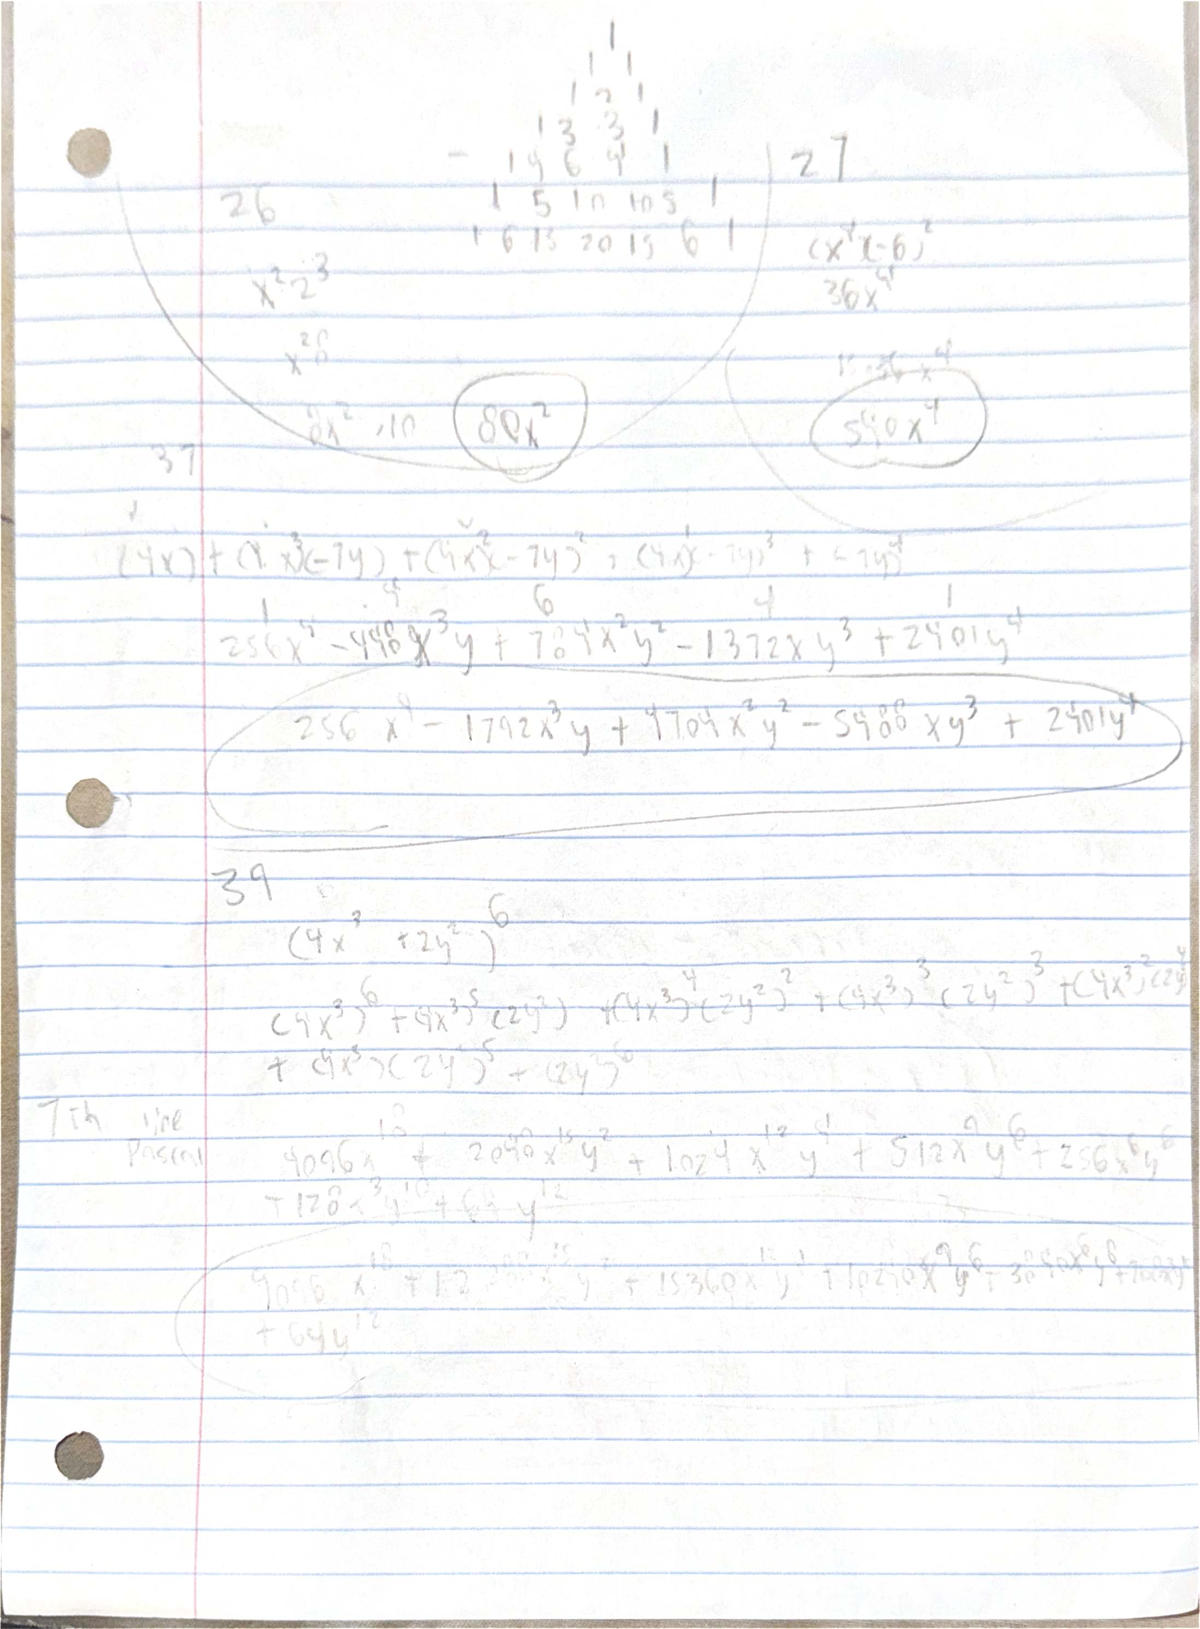 1
1 1
1 2 1
1 3 3 1
- 1 4 6 4 1
1 5 10 10 5 1
1 6 15 20 15 6 1
26
x² 2³
x² 8
8x² · 10 80x²
27
(x⁴)(-6)²
36x⁴
15 · 36 x⁴
540x⁴
37
(4x)⁴ + (4x)³(-7y) + (4x)²(-7y)² + (4x)¹(-7y)³ + (-7y)⁴
1 4 6 4 1
256x⁴ - 448x³y + 784x²y² - 1372xy³ + 2401y⁴
256x⁴ - 1792x³y + 4704x²y² - 5488xy³ + 2401y⁴
39
(4x³ + 2y²)⁶
(4x³)⁶ + (4x³)⁵(2y²) + (4x³)⁴(2y²)² + (4x³)³(2y²)³ + (4x³)²(2y²)⁴
+ (4x³)(2y²)⁵ + (2y²)⁶
7th line
Pascal
4096x¹⁸ + 2048x¹⁵y² + 1024x¹²y⁴ + 512x⁹y⁶ + 256x⁶y⁸
+ 128x³y¹⁰ + 64y¹²
4096x¹⁸ + 12288x¹⁵y² + 15360x¹²y⁴ + 10240x⁹y⁶ + 3840x⁶y⁸
+ 64y¹²